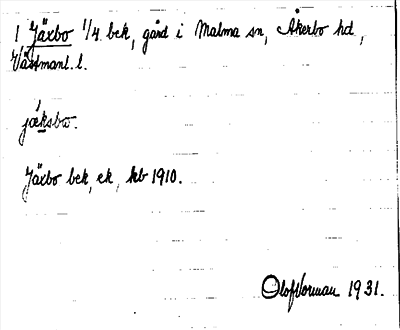 1 Jäxbo 1/4 bek, gård i Malma sn, Åkerbo hd,
Västmanl. l.
jäksbo.
Jäxbo bek, ek, kb 1910.
Olof Vorman 1931.